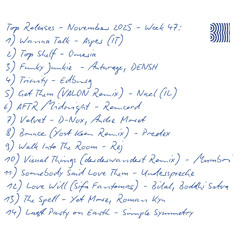 Top Releases - November 2025 - Week 47:
1) Wanna Talk - Aspes (IT)
2) Top Shelf - Omeria
3) Funky Junkie - Anturage, DENSH
4) Trinity - Edbusg
5) Get Them (VALON Remix) - Nael (IL)
6) AFTR / Midnight - Remcord
7) Velvet - D-Nox, Andre Moret
8) Bounce (Yost Koen Remix) - Predex
9) Walk Into The Room - Rej
10) Visual Things (Remix) - Mumbai
11) Somebody Said Love Them - Undersspreche
12) Love Will (Sifa Fantomas) - Bilal, Boddhi Satva
13) The Spell - Yet More, Roman Kyn
14) Last Party on Earth - Simple Symmetry